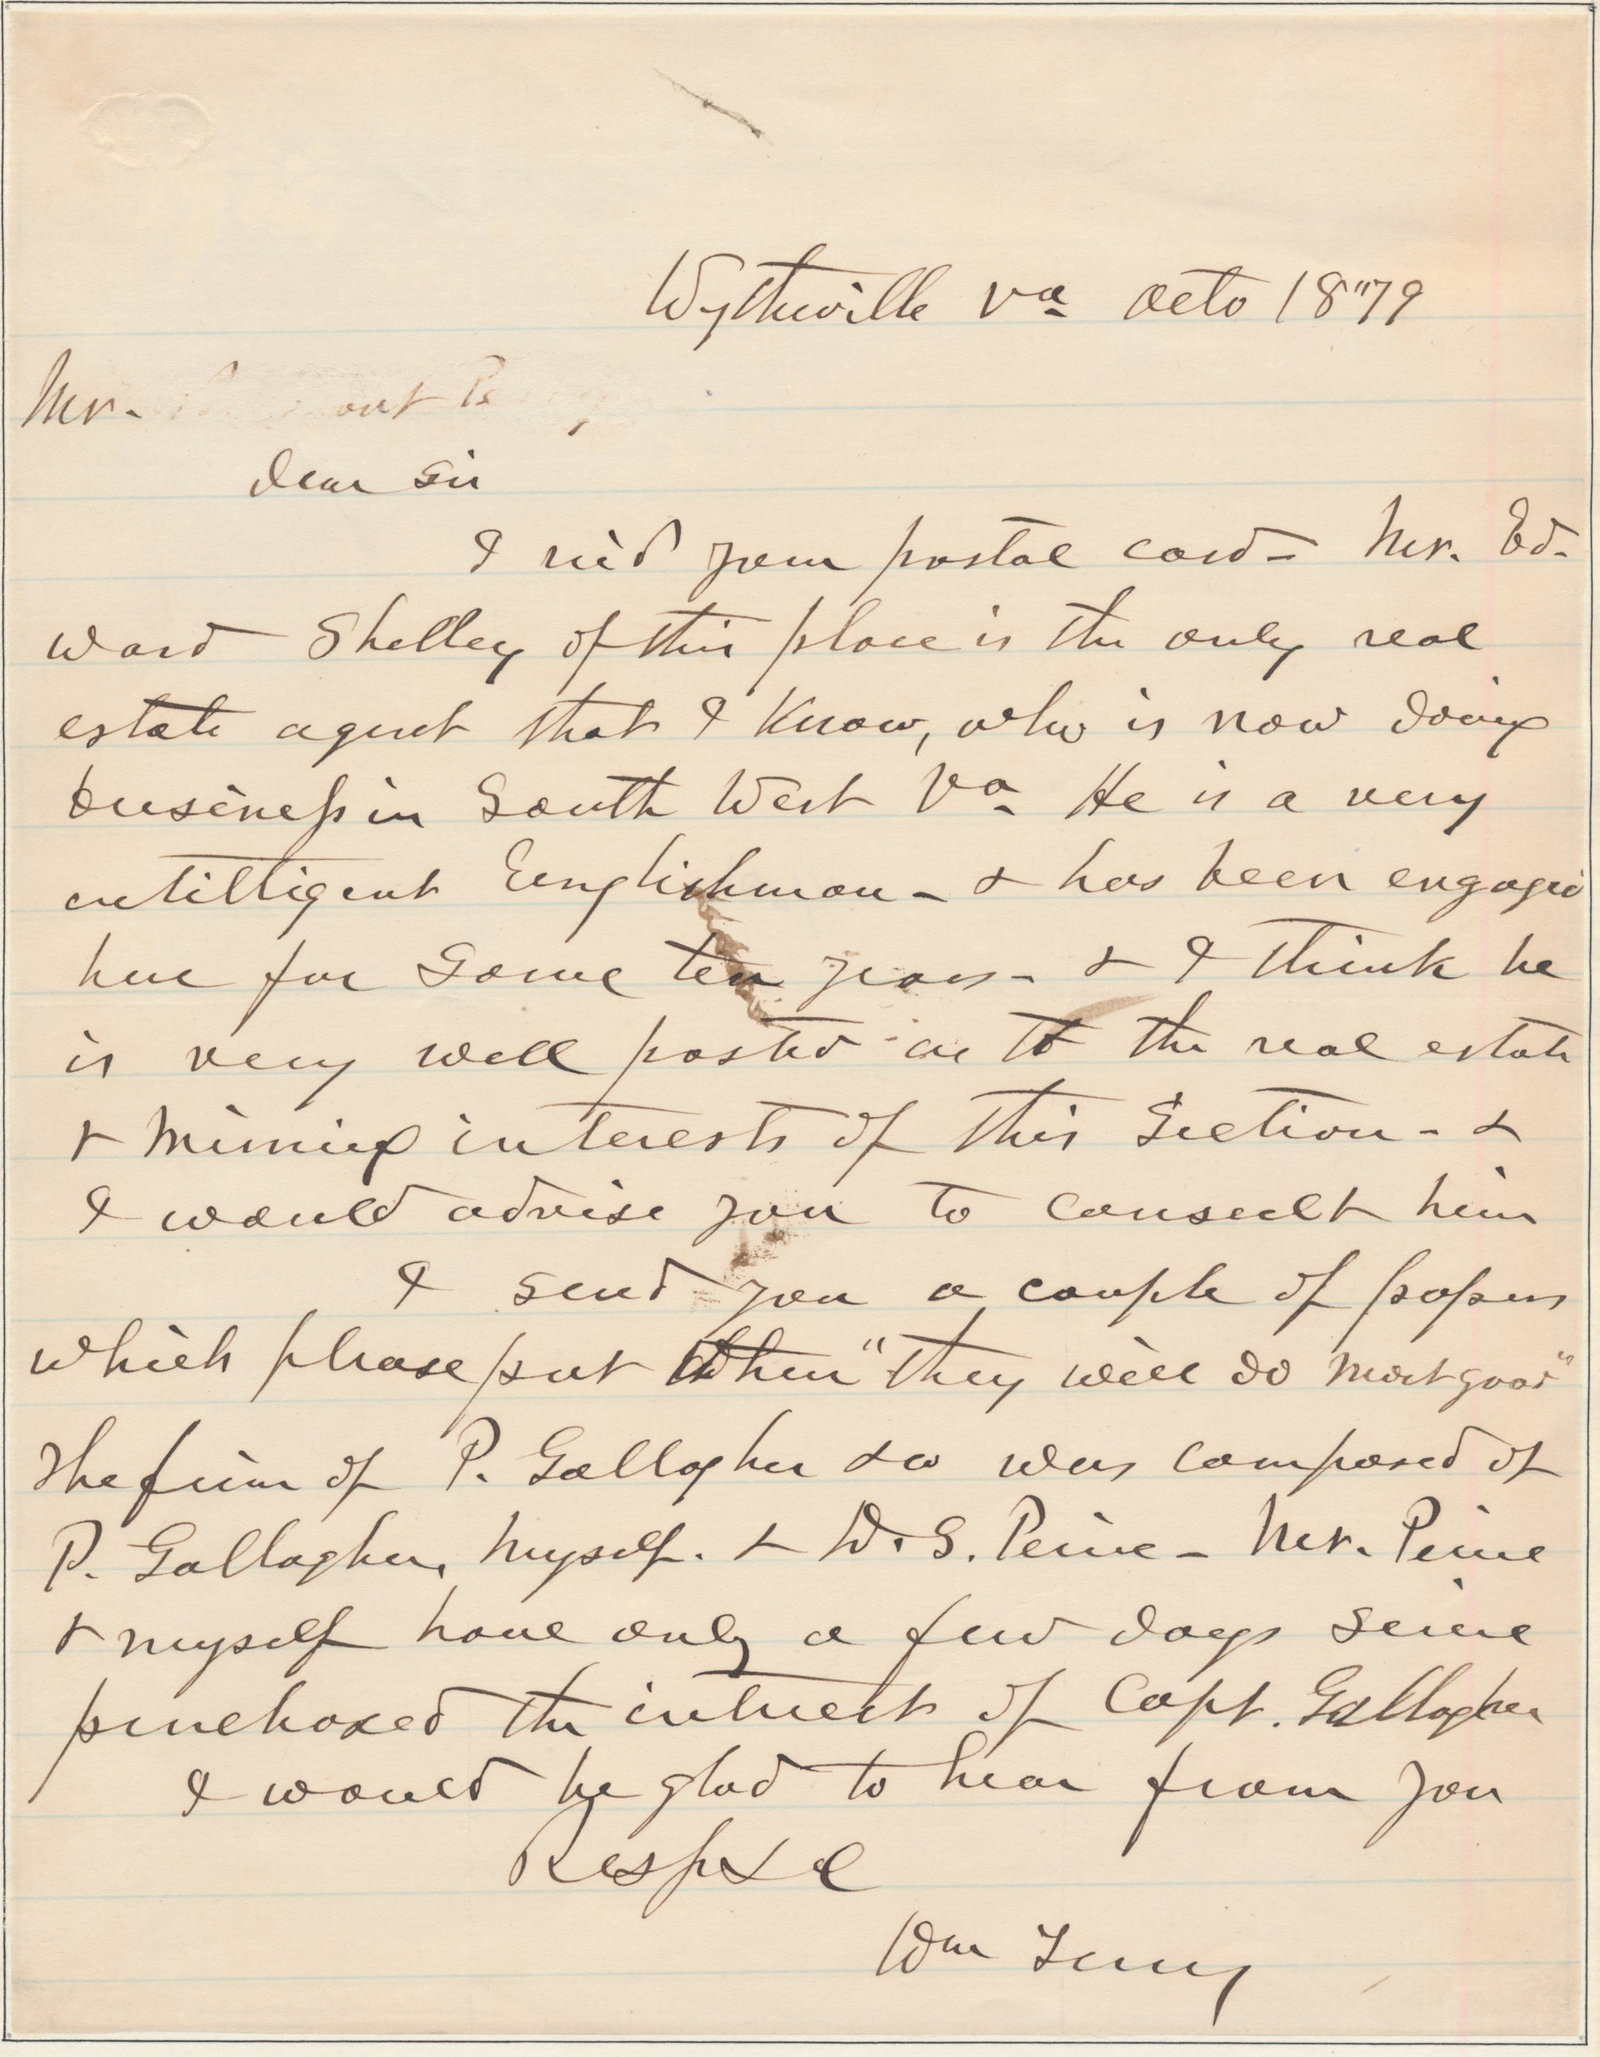 Wytheville Va Octo 18"79
Mr.
Dear Sir
I rec'd your postal card - Mr. Ed-
ward Shelley of this place is the only real
estate agent that I Know, who is now doing
business in South West Va He is a very
intilligent Englishman - & has been engaged
here for some ten years - & I think he
is very well posted as to the real estate
& Mining interests of this Section - &
I would advise you to consult him
I send you a couple of papers
which please put when "they will do most good"
The firm of P. Gallagher & co was composed of
P. Gallagher, Myself. & D. S. Peirce - Mr. Peirce
& myself have only a few days since
purchased the interest of Capt. Gallagher
I would be glad to hear from you
Respct l
Wm Terry